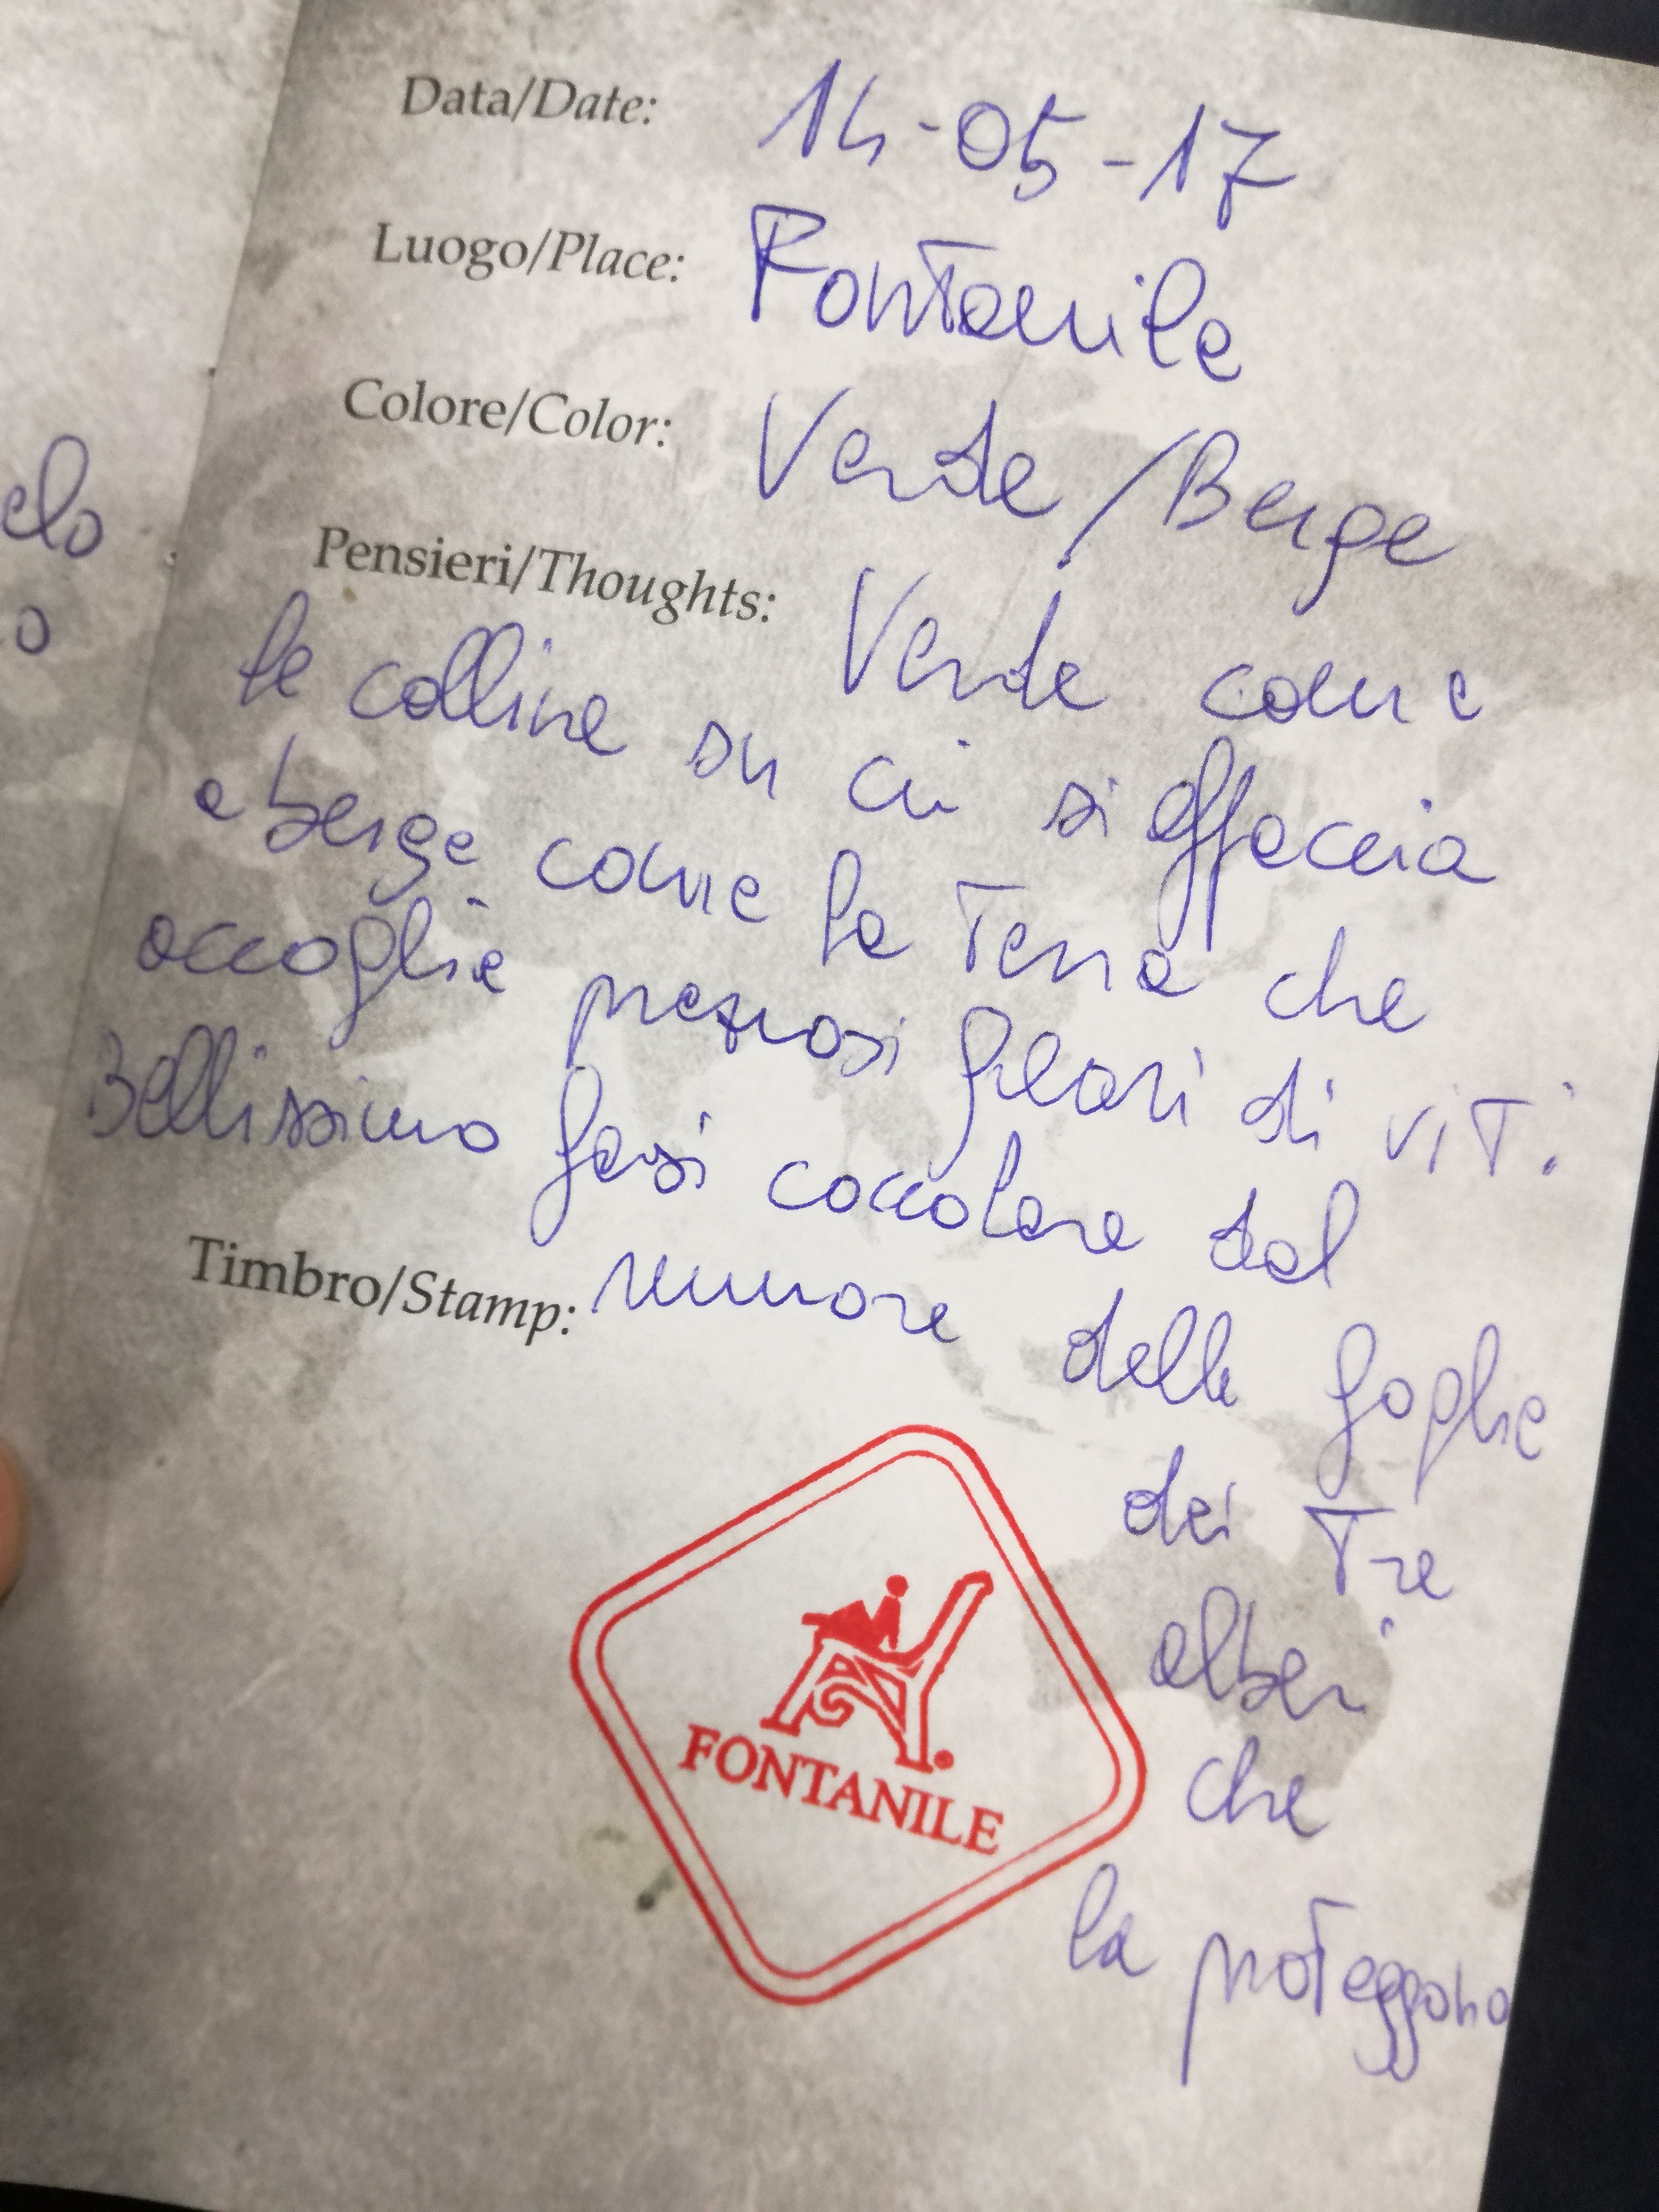 Data/Date: 14-05-17
Luogo/Place: Fontanile
Colore/Color: Verde/Beige
Pensieri/Thoughts: Verde come
le colline su cui si affaccia
e beige come la terra che
accoglie preziosi filari di viti
Bellissimo farsi coccolare dal
Timbro/Stamp: rumore delle foglie
dei tre
alberi
che
la proteggono
FONTANILE
elo
o